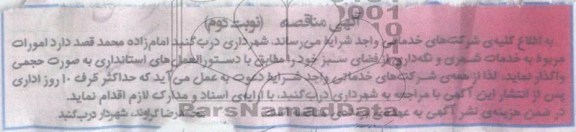 آگهی مناقصه (نوبت دوم)
به اطلاع کلیه‌ی شرکت‌های خدماتی واجد شرایط می‌رساند، شهرداری درب گنبد امامزاده محمد قصد دارد امورات
مربوط به خدمات شهری و نگه‌داری از فضای سبز خود را مطابق با دستورالعمل‌های استانداری به صورت حجمی
واگذار نماید. لذا از همه‌ی شرکت‌های خدماتی واجد شرایط دعوت به عمل می‌آید که حداکثر ظرف ۱۰ روز اداری
پس از انتشار این آگهی با مراجعه به شهرداری درب گنبد، با ارایه‌ی اسناد و مدارک لازم اقدام نماید.
در ضمن هزینه‌ی نشر آگهی به عهده‌ی
محمدرضا گراوند، شهردار درب گنبد
ParsNamadData